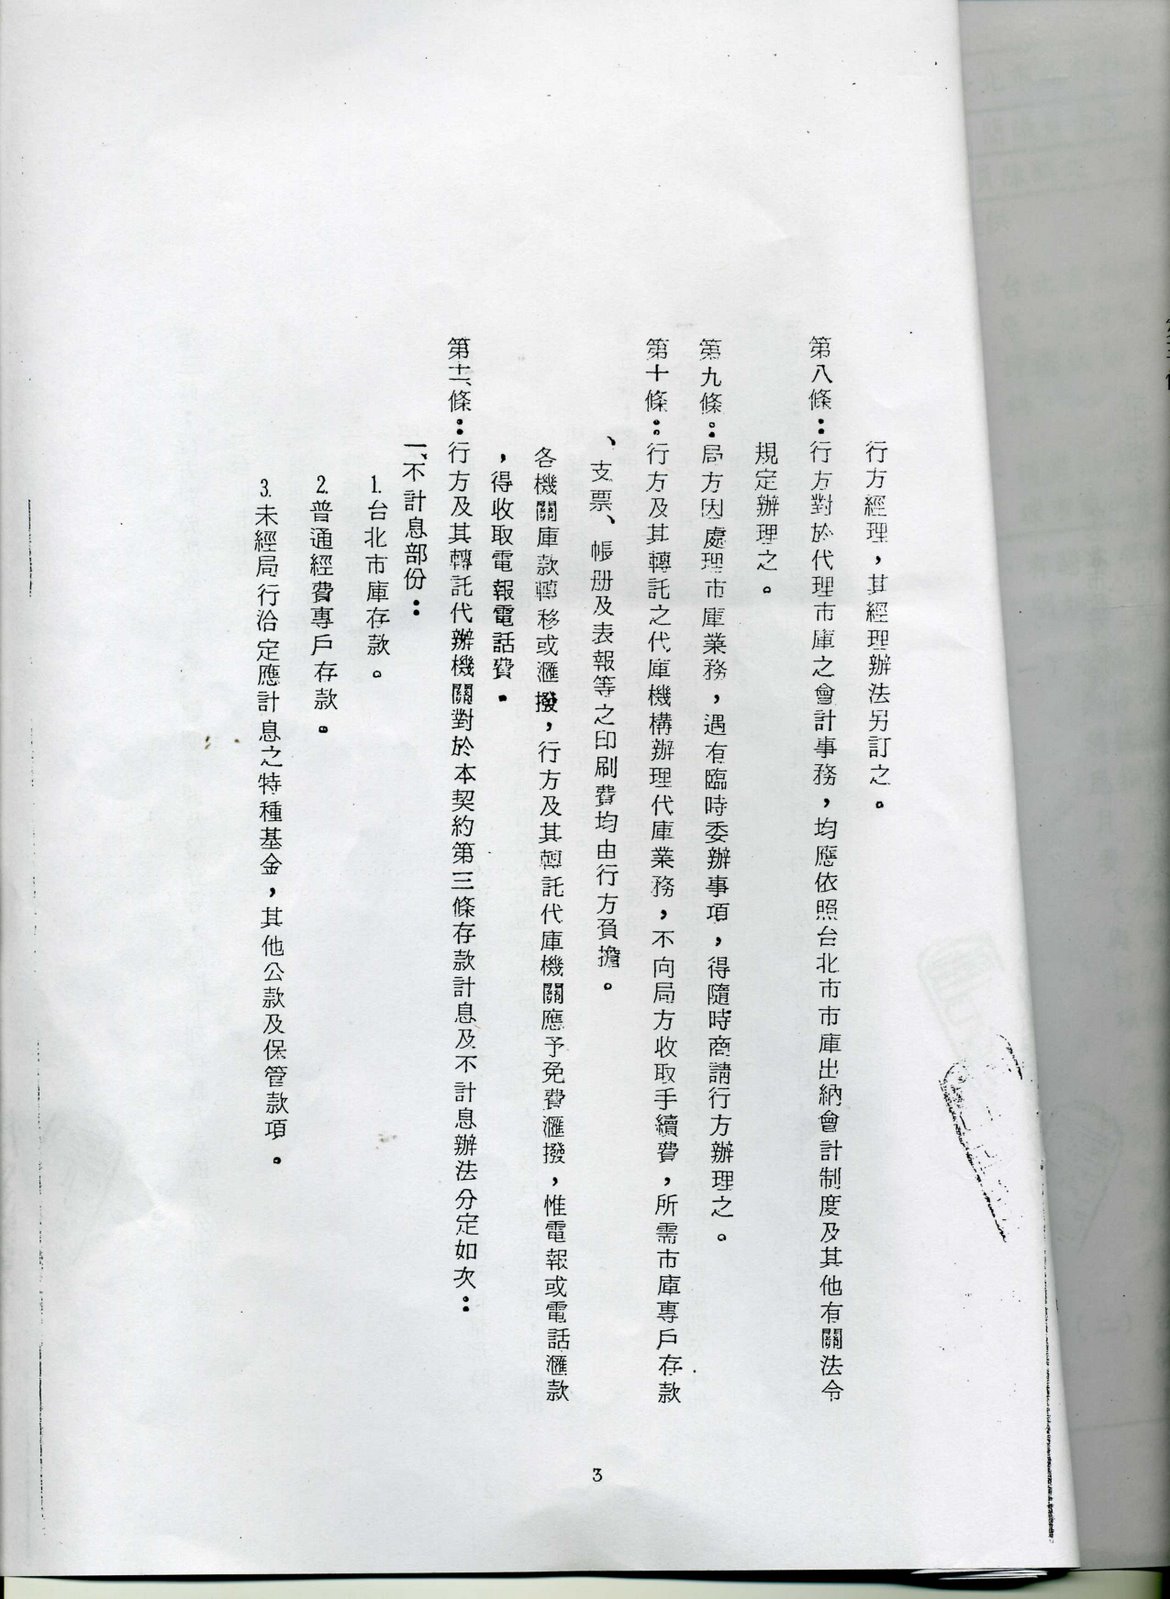 行方經理，其經理辦法另訂之。
第八條：行方對於代理市庫之會計事務，均應依照台北市市庫出納會計制度及其他有關法令
規定辦理之。
第九條：局方因處理市庫業務，遇有臨時委辦事項，得隨時商請行方辦理之。
第十條：行方及其轉託之代庫機構辦理代庫業務，不向局方收取手續費，所需市庫專戶存款
、支票、帳册及表報等之印刷費均由行方負擔。
各機關庫款轉移或滙撥，行方及其轉託代庫機關應予免費滙撥，惟電報或電話滙款
，得收取電報電話費。
第十一條：行方及其轉託代辦機關對於本契約第三條存款計息及不計息辦法分定如次：
一、不計息部份：
1.台北市庫存款。
2.普通經費專戶存款。
3.未經局行洽定應計息之特種基金，其他公款及保管款項。
3